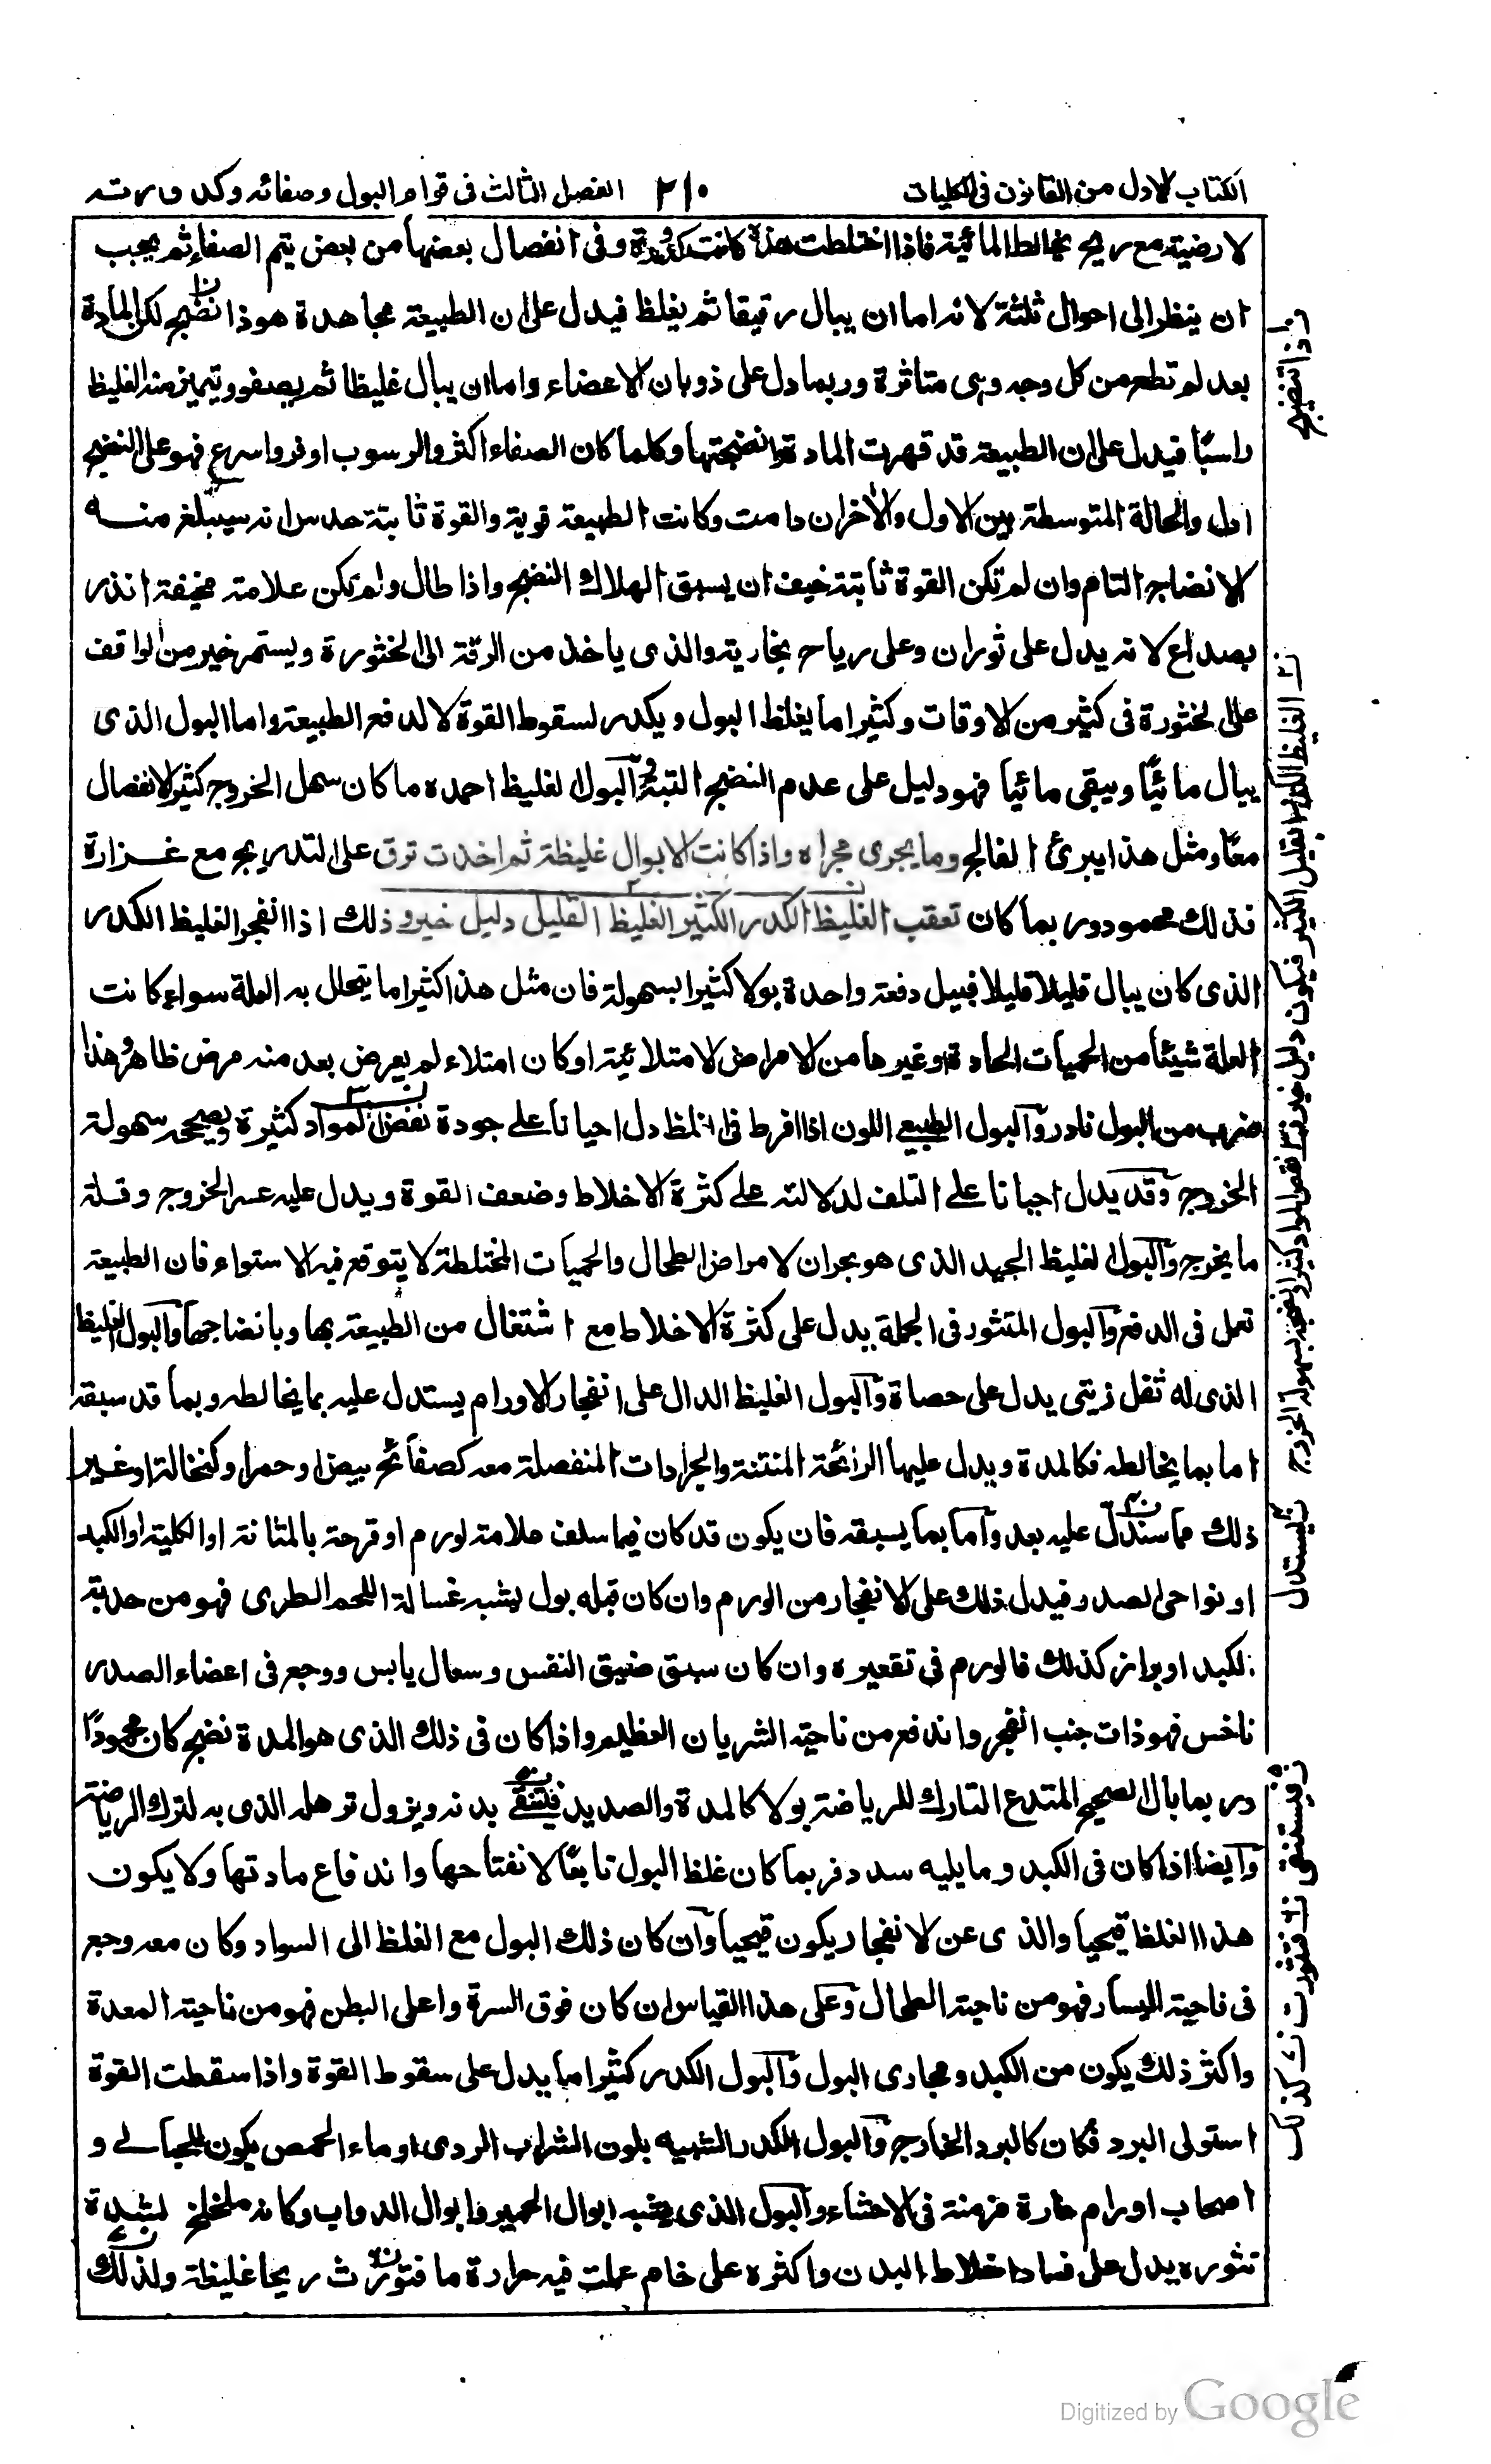 الكتاب الاول من القانون فى الكليات
٢١٠
الفصل الثالث فى قوام البول وصفائه وكدورته
الارضية مع ريح يخالط المائية فاذا اختلطت هذه كانت كدورة وفى انفصال بعضها من بعض يتم الصفاء ثم يجب
ان ينظر الى احوال ثلثة لانه اما ان يبال رقيقا ثم يغلظ فيدل على ان الطبيعة مجاهدة هو ذا تنضج لكن المادة
بعد لم تطع من كل وجه وهى متاثرة وربما دل على ذوبان الاعضاء واما ان يبال غليظا ثم يصفو ويتميز منه الغليظ
راسبًا فيدل على ان الطبيعة قد قهرت المادة وانضجتها وكلما كان الصفاء اكثر والرسوب اوفر واسرع فهو على النضج
ادل والحالة المتوسطة بين الاول والأخر ان دامت وكانت الطبيعة قوية والقوة ثابتة حدس انه سيبلغ منه
الانضاج التام وان لم تكن القوة ثابتة خيف ان يسبق الهلاك النضج واذا طال ولم تكن علامة مخيفة انذر
بصداع لانه يدل على ثوران وعلى رياح بخارية والذى ياخذ من الرقة الى الخثورة ويستمر خير من الواقف
على الخثورة فى كثير من الاوقات وكثيرا ما يغلظ البول ويكدر لسقوط القوة لا لدفع الطبيعة واما البول الذى
يبال مائيًا ويبقى مائيا فهو دليل على عدم النضج البتة والبول الغليظ احمده ما كان سهل الخروج كثير الانفصال
معًا ومثل هذا يبرئ الفالج وما يجرى مجراه واذا كانت الابوال غليظة ثم اخذت ترق على التدريج مع غزارة
فذلك محمود وربما كان تعقب الغليظ الكدر الكثير الغليظ القليل دليل خير وذلك اذا انفجر الغليظ الكدر
الذى كان يبال قليلا قليلا فبيل دفعة واحدة بولا كثيرا بسهولة فان مثل هذا كثيرا ما يتحلل به العلة سواء كانت
العلة شيئا من الحميات الحادة او غيرها من الامراض الامتلائية او كان امتلاء لم يعرض بعد منه مرض ظاهر وهذا
ضرب من البول نادر والبول الطبيعي اللون اذا افرط فى الغلظ دل احيانا على جودة نفض لمواد كثيرة ويصححه سهولة
الخروج وقد يدل احيانا على التلف لدلالته على كثرة الاخلاط وضعف القوة ويدل عليه عسر الخروج وقلة
ما يخرج والبول الغليظ الجيد الذى هو بحران لامراض الطحال والحميات المختلطة لا يتوقع فيه الاستواء فان الطبيعة
تعمل فى الدفع والبول المتثور فى الجملة يدل على كثرة الاخلاط مع اشتغال من الطبيعة بها وبانضاجها والبول الغليظ
الذى له ثفل زيتى يدل على حصاة والبول الغليظ الدال على انفجار الاورام يستدل عليه بما يخالطه وبما قد سبقه
اما بما يخالطه فكالمدة ويدل عليها الرائحة المنتنة والجرادات المنفصلة معه كصفائح بيض او حمر او كنخالة او غير
ذلك مما سندل عليه بعد واما بما يسبقه فان يكون قد كان فيما سلف علامة لورم او قرحة بالمثانة او الكلية او الكبد
او نواحى الصدر فيدل ذلك على الانفجار من الورم وان كان قبله بول يشبه غسالة اللحم الطرى فهو من حدبة
الكبد او براز كذلك فالورم فى تقعيره وان كان سبق ضيق النفس وسعال يابس ووجع فى اعضاء الصدر
ناخس فهو ذات جنب انفجر واندفع من ناحية الشريان العظيم واذا كان فى ذلك الذى هو المدة نضج كان محمودًا
وربما بال الصحيح المتدع التارك للرياضة بولا كالمدة والصديد فيتنقى بدنه ويزول ترهله الذى به لترك الرياضة
وايضا اذا كان فى الكبد وما يليه سدد فربما كان غلظ البول تابعًا لانفتاحها واندفاع مادتها ولا يكون
هذا الغلظ قيحيا والذى عن الانفجار يكون قيحيا وان كان ذلك البول مع الغلظ الى السواد وكان معه وجع
فى ناحية اليسار فهو من ناحية الطحال وعلى هذا القياس ان كان فوق السرة واعلى البطن فهو من ناحية المعدة
واكثر ذلك يكون من الكبد ومجارى البول والبول الكدر كثيرا ما يدل على سقوط القوة واذا سقطت القوة
استولى البرد فكان كالبرد الخارج والبول الكدر الشبيه بلون الشراب الردى او ماء الحمص يكون للحبالى و
اصحاب اورام حارة مزمنة فى الاحشاء والبول الذى يشبه ابوال الحمير وابوال الدواب وكانه ملخلخ لشدة
تثوره يدل على فساد اخلاط البدن واكثره على خام عملت فيه حرارة ما فثورت ريحا غليظة ولذلك
اذا تنضج
ن٢ الغليظ الكدر القليل الكثير فيكون دليل خير
ن٣ نقص المواد كثيرا لنضجه بسهولة الخروج
ن٤ يستدل
ن٥ فيستنقى
ن٦ فتثورت
ن٧ كذلك
Digitized by Google